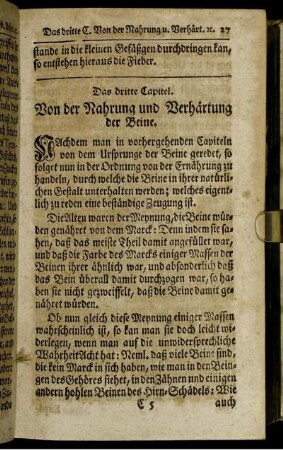 Das dritte C. Von der Nahrung u. Verhärt. ꝛc. 27
stande in die kleinen Gefäßgen durchdringen kan,
so entstehen hieraus die Fieber.
Das dritte Capitel.
Von der Nahrung und Verhärtung
der Beine.
Nachdem man in vorhergehenden Capiteln
von dem Ursprunge der Beine geredet, so
folget nun in der Ordnung von der Ernährung zu
handeln, durch welche die Beine in ihrer natürli-
chen Gestalt unterhalten werden; welches eigent-
lich zu reden eine beständige Zeugung ist.
Die Alten waren der Meynung, die Beine wür-
den genähret von dem Marck: Denn indem sie sa-
hen, daß das meiste Theil damit angefüllet war,
und daß die Farbe des Marcks einiger Massen der
Beinen ihrer ähnlich war, und absonderlich daß
das Bein überall damit durchzogen war, so ha-
ben sie nicht gezweiffelt, daß die Beine damit ge-
nähret würden.
Ob nun gleich diese Meynung einiger Massen
wahrscheinlich ist, so kan man sie doch leicht wi-
derlegen, wenn man auf die unwidersprechliche
Wahrheit Acht hat: Neml. daß viele Beine sind,
die kein Marck in sich haben, wie man in den Bein-
gen des Gehöres siehet, in den Zähnen und einigen
andern hohlen Beinen des Hirn-Schädels: Wie
C 5 auch